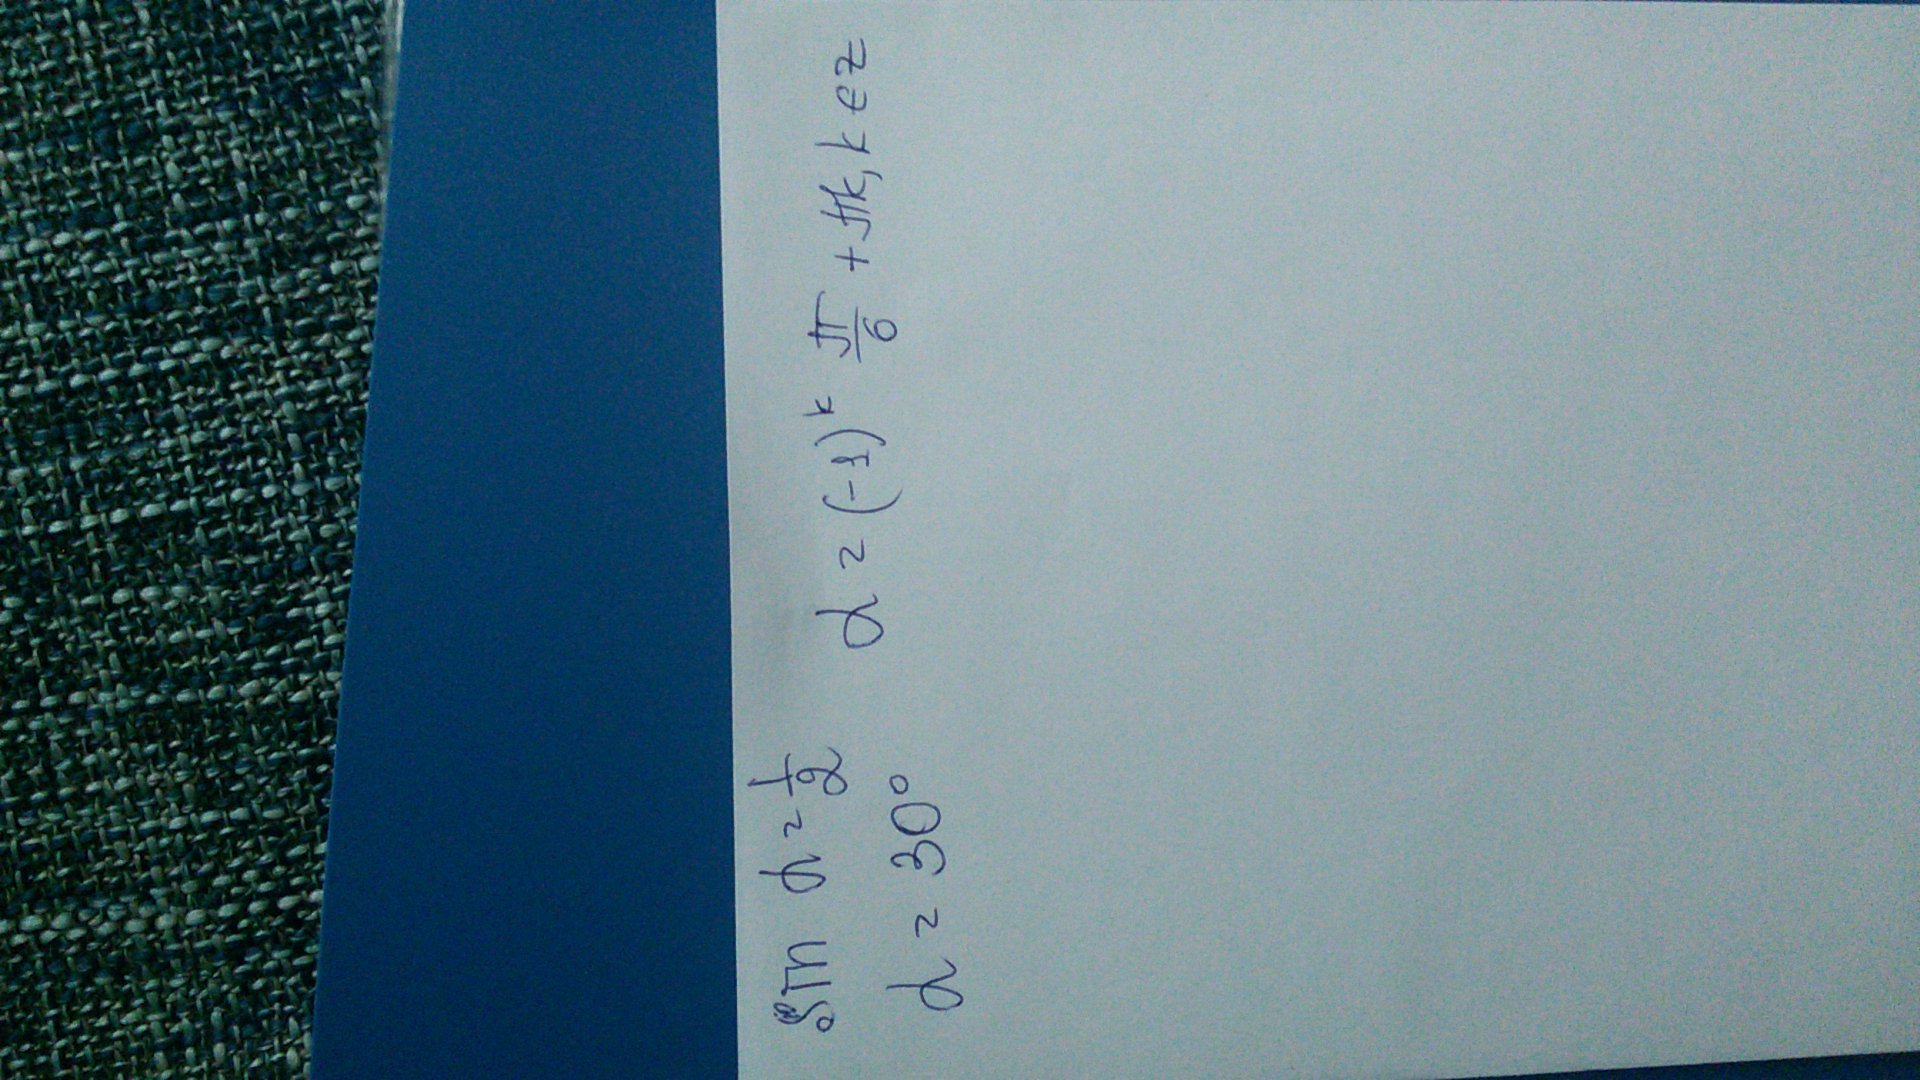 sin α = 1/2
α = 30°
α = (-1)^k π/6 + πk, k ∈ Z